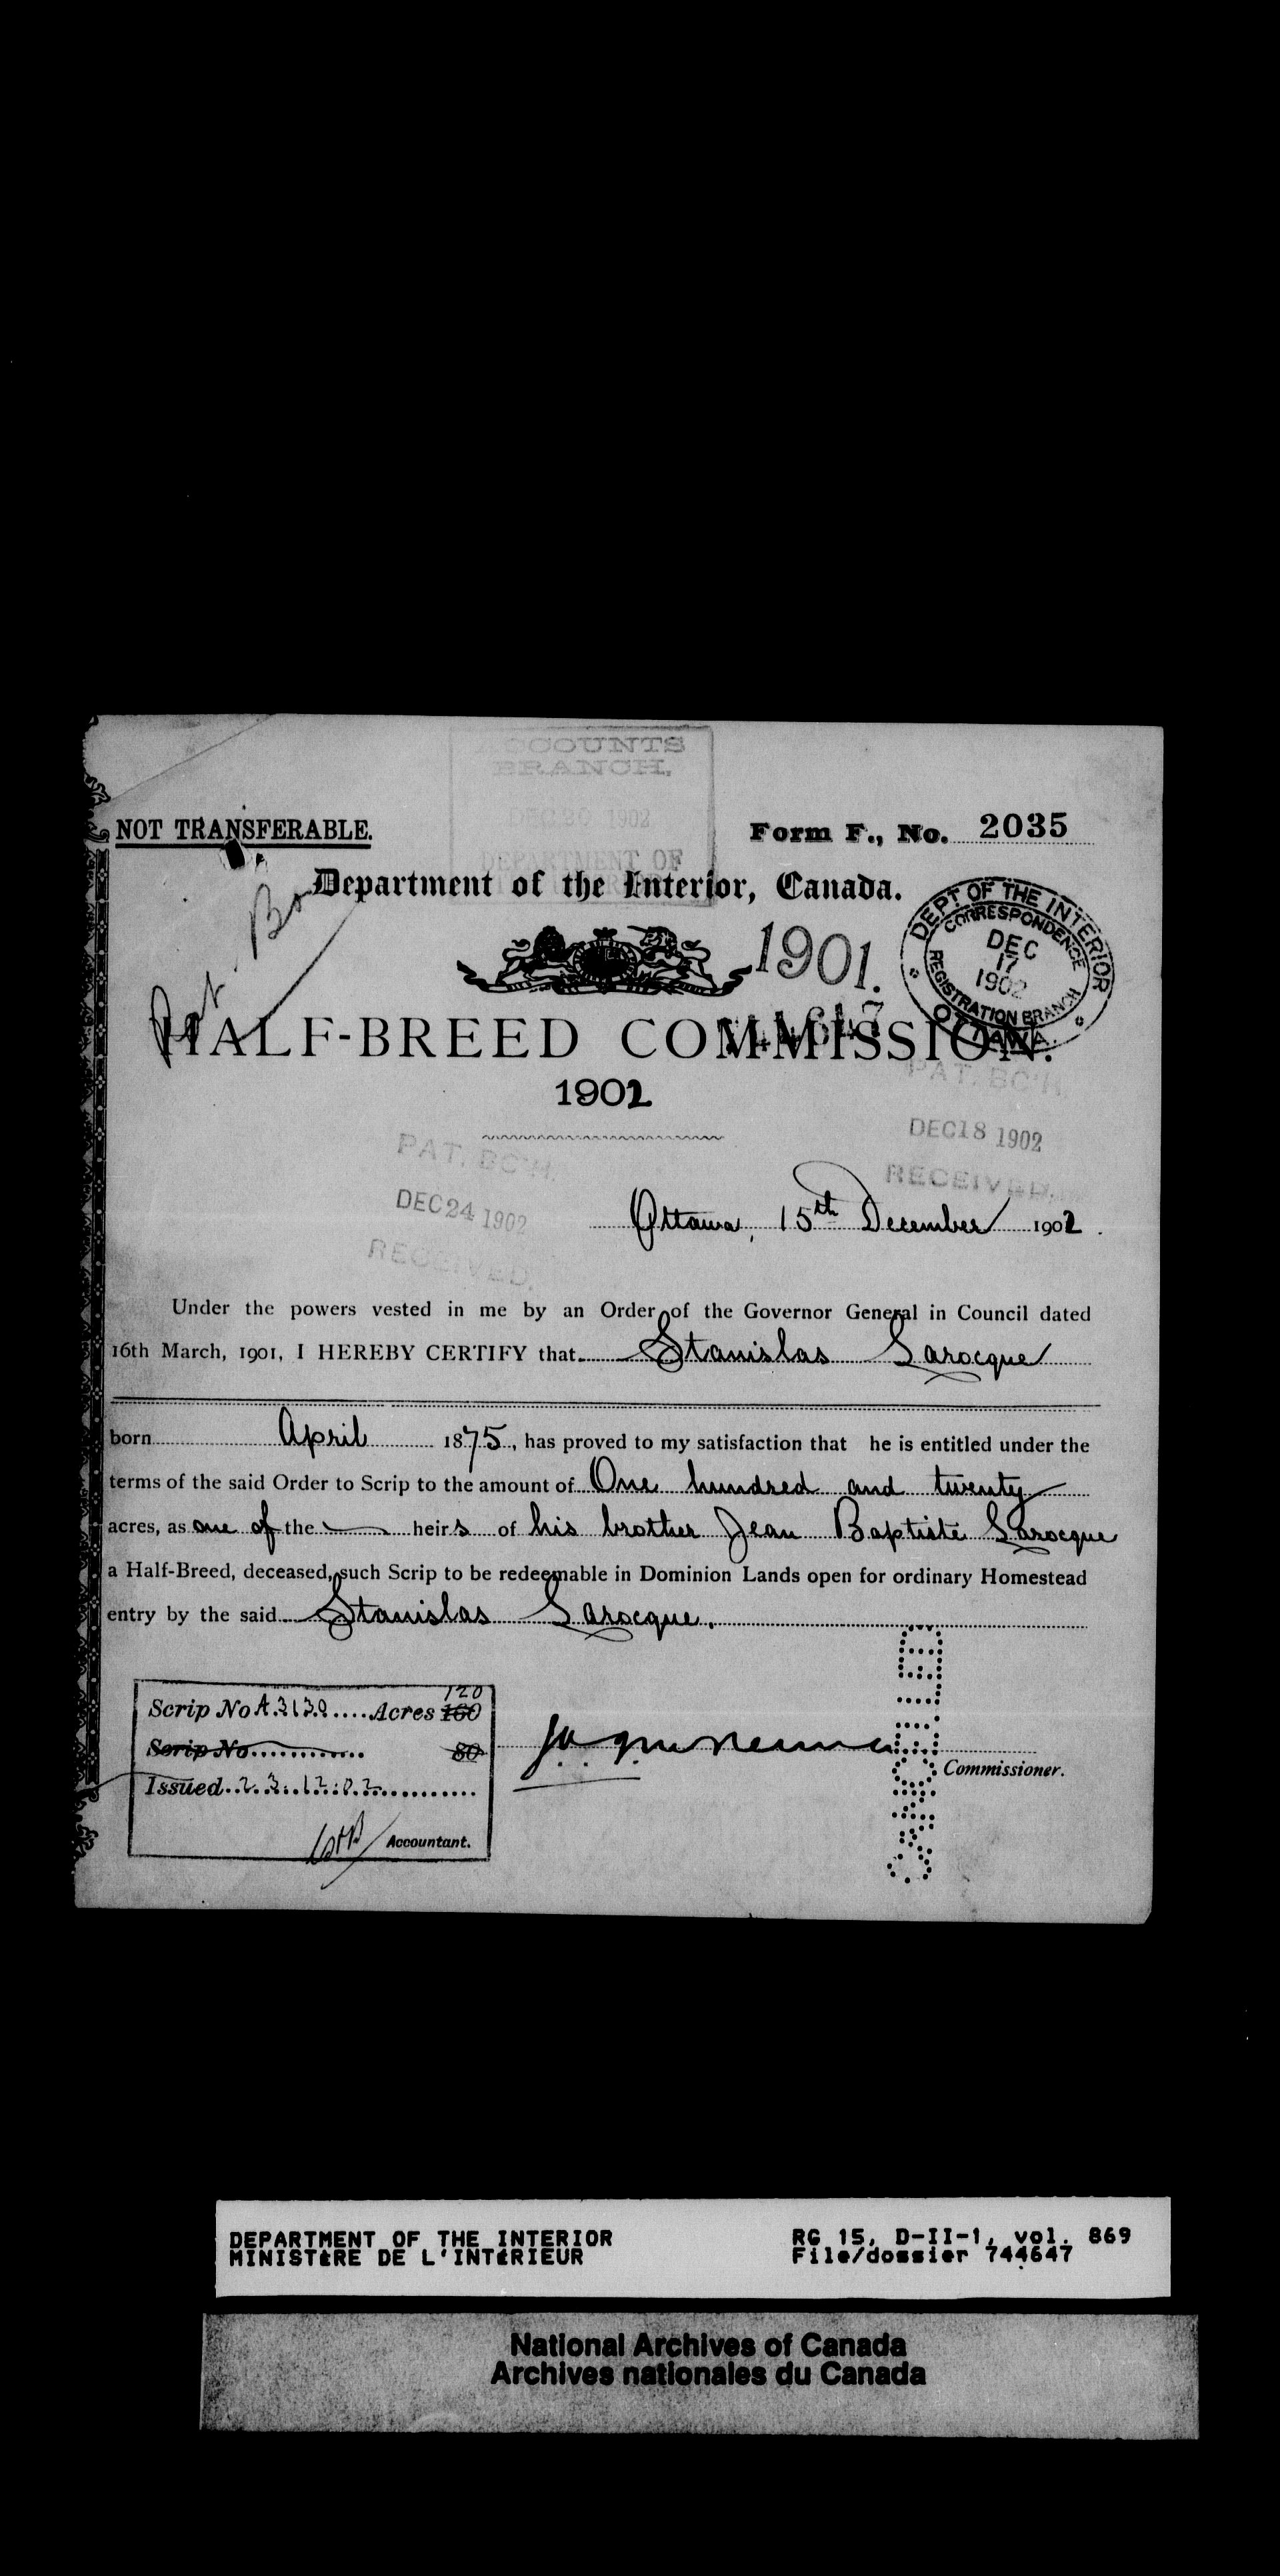 ACCOUNTS
BRANCH.
DEC 20 1902
DEPARTMENT OF
NOT TRANSFERABLE.
Form F., No. 2035
Department of the Interior, Canada.
Pat. Br
1901.
DEPT OF THE INTERIOR
CORRESPONDENCE
DEC
17
1902
REGISTRATION BRANCH
OTTAWA.
HALF-BREED COMMISSION.
1902
PAT. BC'H.
DEC 18 1902
RECEIVED.
PAT. BC'H.
DEC 24 1902
RECEIVED.
Ottawa, 15th December 1902.
Under the powers vested in me by an Order of the Governor General in Council dated
16th March, 1901, I HEREBY CERTIFY that Stanislas Larocque
born April 1875, has proved to my satisfaction that he is entitled under the
terms of the said Order to Scrip to the amount of One hundred and twenty
acres, as one of the heirs of his brother Jean Baptiste Larocque
a Half-Breed, deceased, such Scrip to be redeemable in Dominion Lands open for ordinary Homestead
entry by the said Stanislas Larocque.
120
Scrip No A.3130 .... Acres 160
Scrip No ............ 80
Issued 23.12.02
Accountant.
Commissioner.
DEPARTMENT OF THE INTERIOR
MINISTÈRE DE L'INTÉRIEUR
RG 15, D-II-1, vol. 869
File/dossier 744647
National Archives of Canada
Archives nationales du Canada